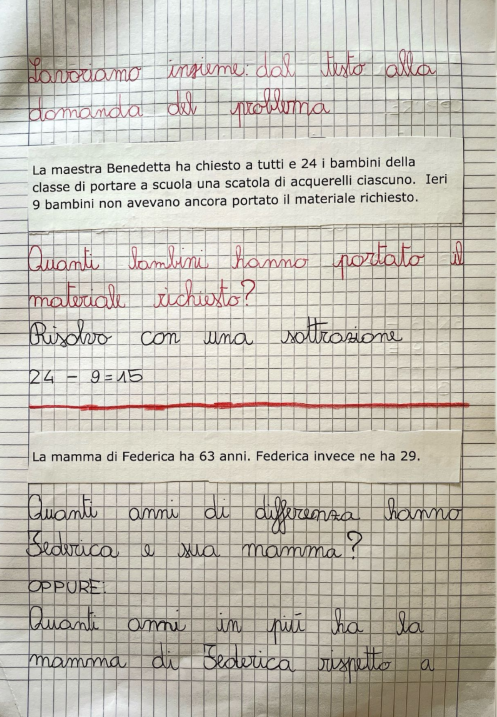 Lavoriamo insieme: dal testo alla
domanda del problema
La maestra Benedetta ha chiesto a tutti e 24 i bambini della
classe di portare a scuola una scatola di acquerelli ciascuno. Ieri
9 bambini non avevano ancora portato il materiale richiesto.
Quanti bambini hanno portato il
materiale richiesto?
Risolvo con una sottrazione
24 - 9 = 15
La mamma di Federica ha 63 anni. Federica invece ne ha 29.
Quanti anni di differenza hanno
Federica e sua mamma?
OPPURE:
Quanti anni in più ha la
mamma di Federica rispetto a